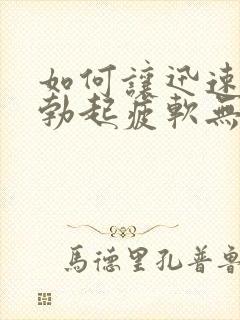 如何讓迅速
勃起疲軟無
馬德里孔普魯